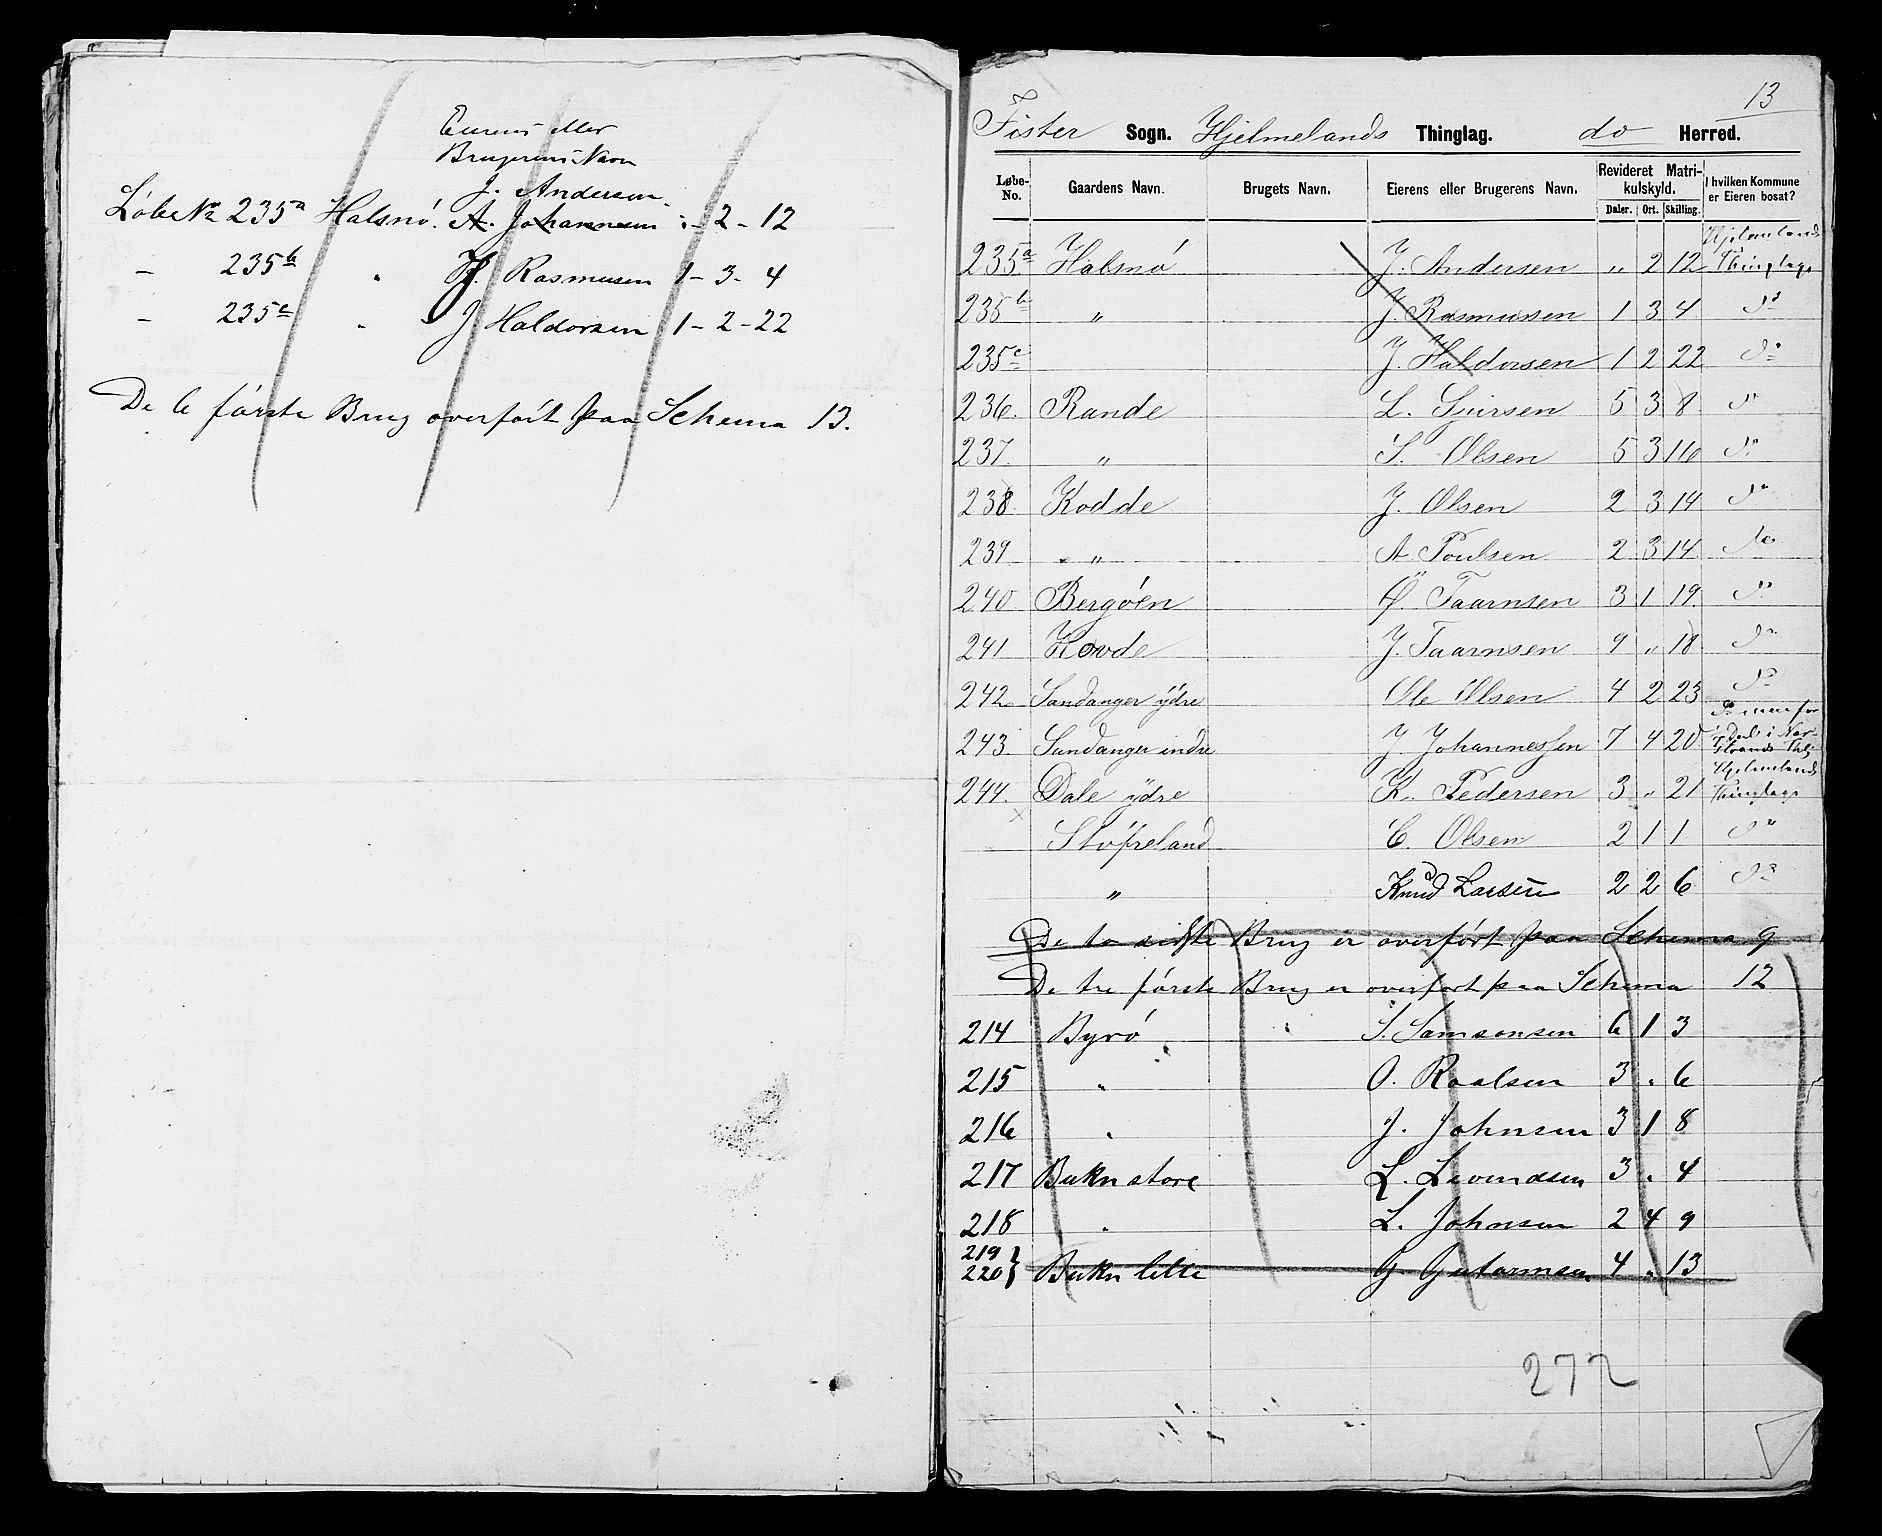 Eierens eller
Brugerens Navn
J. Andersen
Løbe No 235a Halsnø. A. Johannesen : - 2 - 12
- 235b " J. Rasmusen 1 - 3 - 4
- 235c " J Haldorsen 1 - 2 - 22
De 6 første Brug overført paa Schema 13.
13
Fister Sogn. Hjelmelands Thinglag. do Herred.
Løbe-No. Gaardens Navn. Brugets Navn. Eierens eller Brugerens Navn. Revideret Matrikulskyld. Daler. Ort. Skilling. I hvilken Kommune er Eieren bosat?
235a Halsnø J. Andersen " 2 12 Hjelmelands Thinglag
235b " J. Rasmussen 1 3 4 Do
235c J. Haldorsen 1 2 22 Do
236. Rande L. Gjirsen 5 3 8 Do
237. " S. Olsen 5 3 16 Do
238. Kodde J. Olsen 2 3 14 Do
239 " A. Poulsen 2 3 14 Do
240 Bergøen Ø. Taarnsen 3 1 19 Do
241 Hovde J. Taarnsen 9 " 18 Do
242. Sandanger ydre Ole Olsen 4 2 23 Do
243. Sandanger indre J Johannessen 7 4 20 Do men for en Deel i Nerstrands Thlg
244. Dale ydre K. Pedersen 3 " 21 Hjelmelands Thinglag
Støfreland C. Olsen 2 1 1 Do
" Knud Larsen 2 2 6 Do
De to sidste Brug er overført paa Schema 9
De tre første Brug er overført paa Schema 12
214 Byrø S. Samsonsen 6 1 3
215 " O. Roalsen 3 " 6
216 " J. Johnsen 3 1 8
217 Bukn store L. Levendsen 3 " 4
218 " L. Johnsen 2 4 9
219 } 220 } Bukn litle G. Gutormsen 4 " 13
272